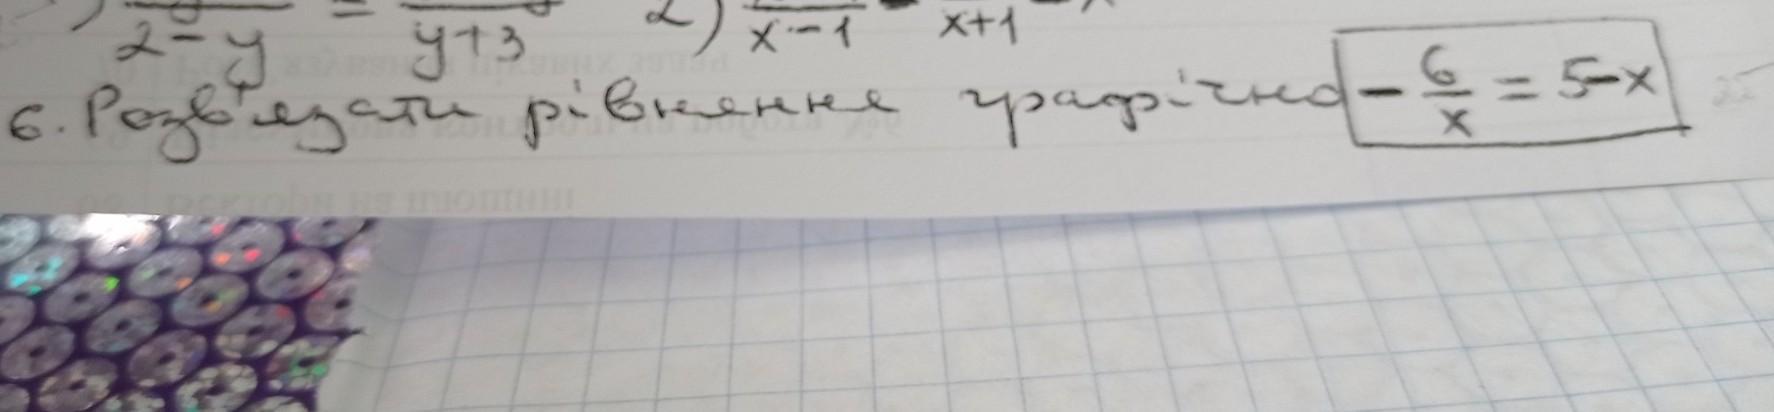 2-y = y+3 2) x-1 - x+1
6. Розв'язати рівняння графічно -6/x = 5-x